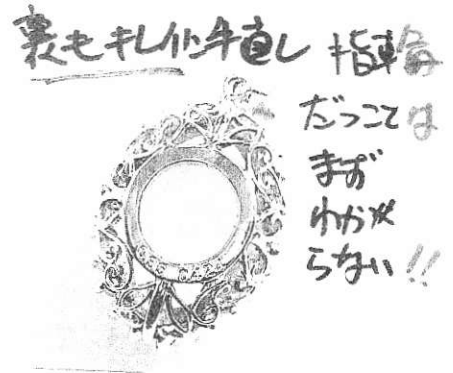 裏もキレイに手直し
指輪
だってことは
まず
わから
らない!!